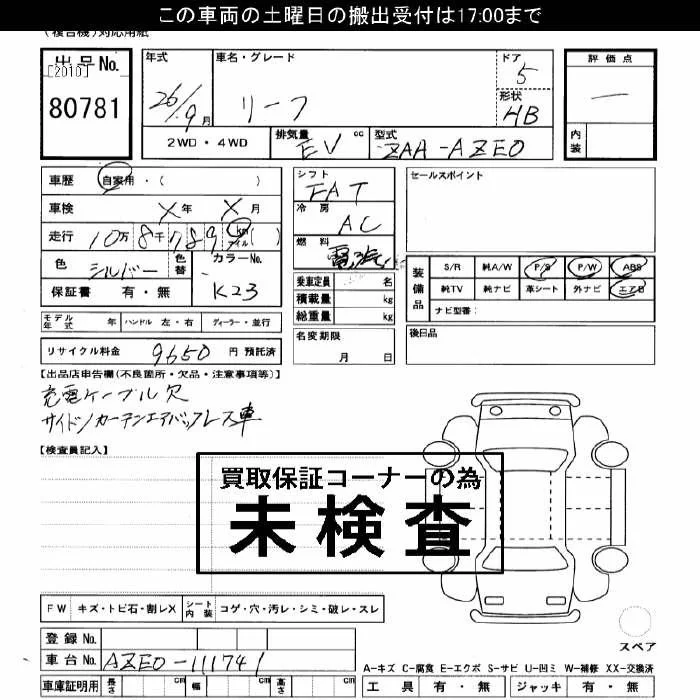 この車両の土曜日の搬出受付は17:00まで
(複合機)対応用紙
出品No.
[2010]
80781
年式
26/9月
車名・グレード
リーフ
ドア
5
形状
HB
評価点
—
内装
2WD・4WD
排気量
EV cc
型式
ZAA-AZE0
車歴 自家用・( )
車検 X年 X月
走行 10万 8千 7 8 9 km マイル( )
色 シルバー 色替 カラーNo.
保証書 有・無 K23
シフト
FAT
冷房
AC
燃料
乗車定員 名
積載量 kg
総重量 kg
名変期限
月 日
セールスポイント
装備品
S/R 純A/W P/S P/W ABS
純TV 純ナビ 革シート 外ナビ エアB
ナビ型番:
後日品
モデル年式 年 ハンドル 左・右 ディーラー・並行
リサイクル料金 9650 円 預託済
【出品店申告欄(不良箇所・欠品・注意事項等)】
充電ケーブル欠
サイド/カーテンエアバックレス車
【検査員記入】
買取保証コーナーの為
未検査
FW キズ・トビ石・割レX シート内装 コゲ・穴・汚レ・シミ・破レ・スレ
登録No.
車台No. AZE0-111741
車庫証明用 長さ cm 幅 cm 高さ cm
スペア
A-キズ C-腐食 E-エクボ S-サビ U-凹ミ W-補修 XX-交換済
工具 有・無 ジャッキ 有・無